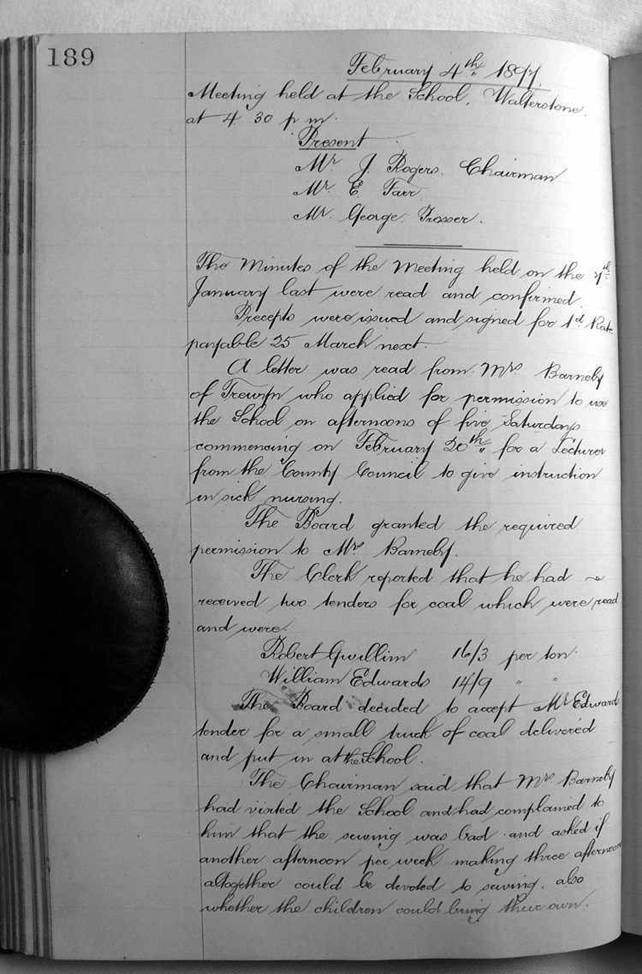 189
February 4th 1897
Meeting held at the School, Walterstone.
at 4 30 p m.
Present
Mr J. Rogers. Chairman
Mr E. Farr.
Mr George Prosser.
The Minutes of the Meeting held on the 7th
January last were read and confirmed.
Precepts were issued and signed for 1st Rate
payable 25 March next.
A letter was read from Mrs Barneby
of Trewyn who applied for permission to use
the School on afternoons of five Saturdays
commencing on February 20th for a Lecturer
from the County Council to give instruction
in sick nursing.
The Board granted the required
permission to Mrs Barneby.
The Clerk reported that he had
received two tenders for coal which were read
and were.
Robert Gwillim 16/3 per ton.
William Edwards 14/9 " "
The Board decided to accept Mr Edwards
tender for a small truck of coal delivered
and put in at the School.
The Chairman said that Mrs Barneby
had visited the School and had complained to
him that the sewing was bad and asked if
another afternoon per week making three afternoons
altogether could be devoted to sewing. also
whether the children could bring their own.